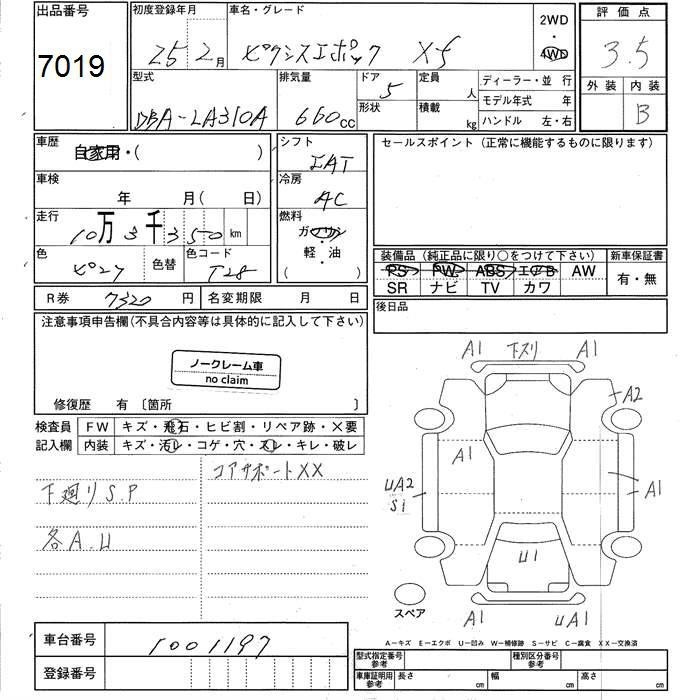 出品番号 初度登録年月 車名・グレード 2WD・4WD 評価点
7019 25年 2月 ピクシスエポック Xf 3.5
外装 内装 B
型式 排気量 ドア 定員 人 ディーラー・並行
DBA-LA310A 660cc 5 形状 積載 kg モデル年式 年
ハンドル 左・右
車歴 自家用・( ) シフト IAT セールスポイント (正常に機能するものに限ります)
車検 年 月( 日) 冷房 AC
走行 10万3千350km 燃料 ガソリン・軽・油 ( )
色 ピンク 色替 色コード T28
装備品 (純正品に限り○をつけて下さい) 新車保証書
PS PW ABS エアB AW 有・無
SR ナビ TV カワ
R券 7320円 名変期限 月 日 後日品
注意事項申告欄(不具合内容等は具体的に記入して下さい)
ノークレーム車
no claim
修復歴 有 〔箇所 〕
検査員 FW キズ・飛石・ヒビ割・リペア跡・×要
記入欄 内装 キズ・汚レ・コゲ・穴・スレ・キレ・破レ
コアサポートXX
下廻りS.P
各A.U
A1 下スリ A1
A2
A1
UA2
S1
A1
U1
A1 UA1
スペア
A-キズ E-エクボ U-凹み W-補修跡 S-サビ C-腐食 XX-交換済
車台番号 1001197
登録番号
型式指定番号 参考 種別区分番号 参考
車庫証明用 参考 長さ cm 幅 cm 高さ cm